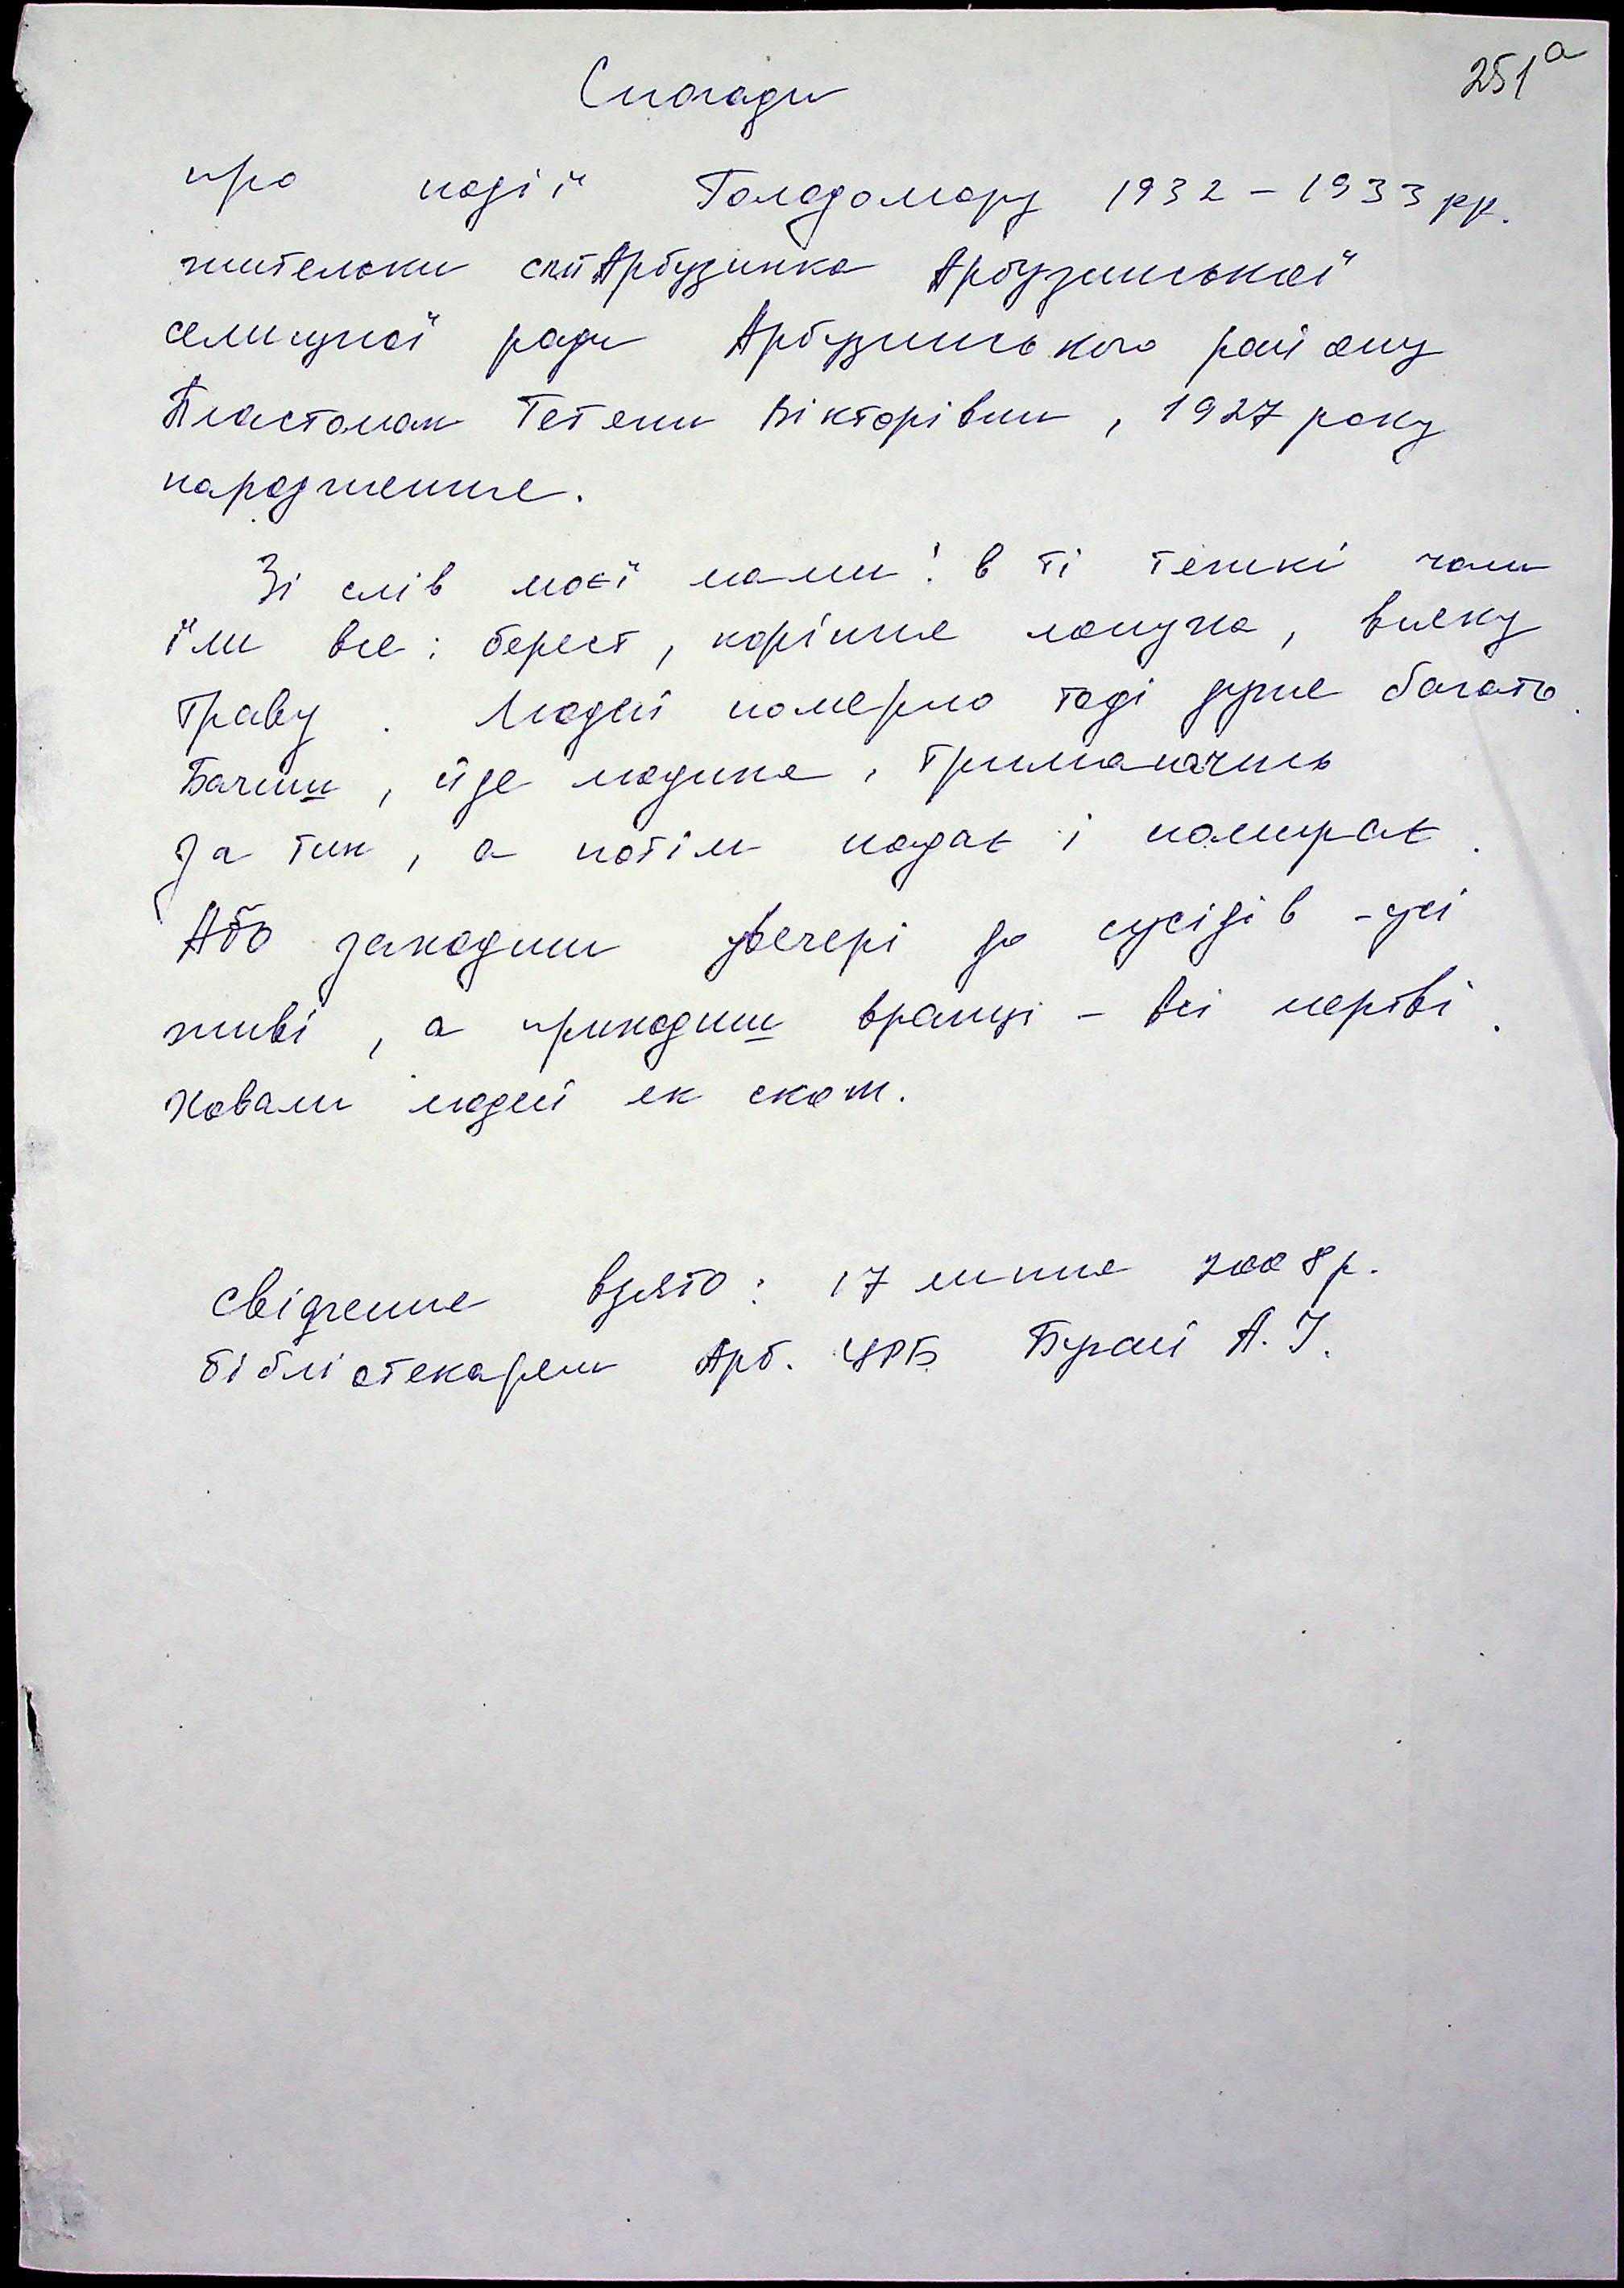 251а
Спогади
про події Голодомору 1932 – 1933 рр.
жительки смт Арбузинка Арбузинської
селищної ради Арбузинського району
Тетяни Вікторівни, 1927 року
народження.
Зі слів моєї мами: в ті тяжкі часи
їли все: берест, коріння лопуха, всяку
траву. Людей померло тоді дуже багато.
Бачиш, йде людина, тримаючись
за тин, а потім падає і помирає.
Або заходиш увечері до сусідів - усі
живі, а приходиш вранці – всі мертві.
Ховали людей як скот.
Свідчення взято: 17 липня 2008 р.
бібліотекарем Арб. ЦРБ А. І.